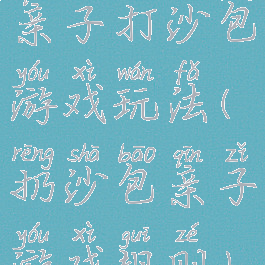 亲子打沙包
yóu xì wán fǎ
游戏玩法(
rēng shā bāo qīn zǐ
扔沙包亲子
yóu xì guī zé
游戏规则)